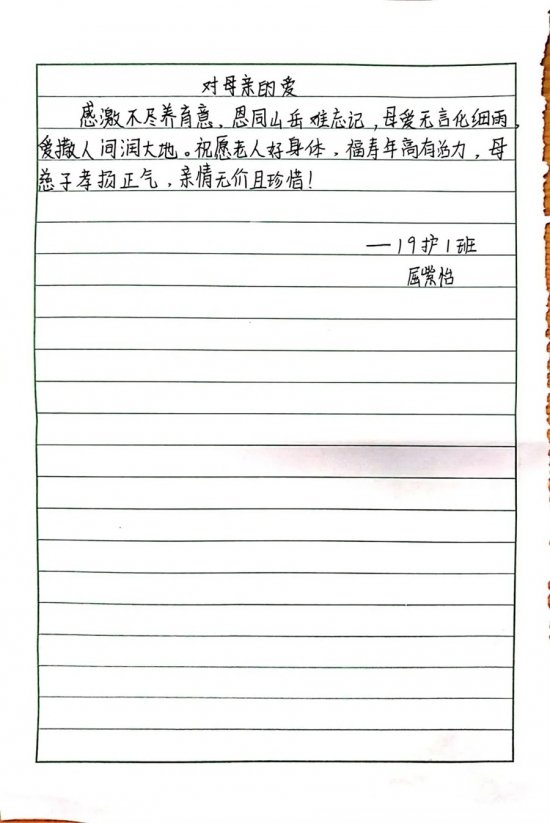 对母亲的爱
感激不尽养育意，恩同山岳难忘记，母爱无言化细雨，
爱撒人间润大地。祝愿老人好身体，福寿年高有活力，母
慈子孝扬正气，亲情无价且珍惜！
—19护1班
屈紫怡